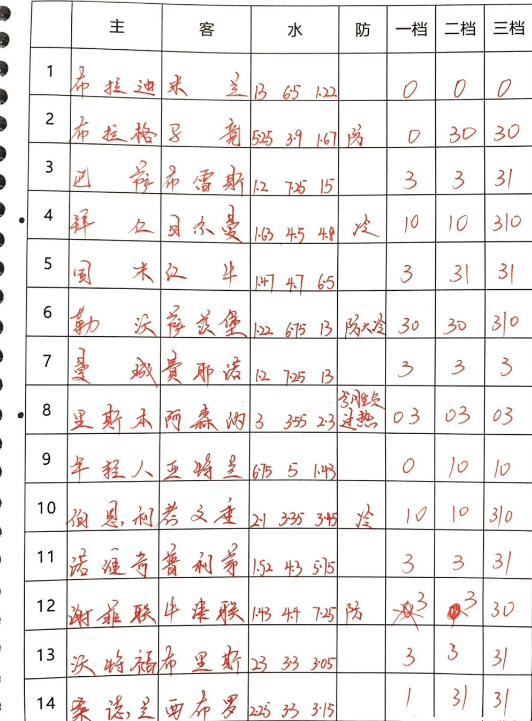 主 客 水 防 一档 二档 三档
1 布拉迪 米兰 13 6.5 1.22 0 0 0
2 布拉格 马竞 5.25 3.9 1.67 防 0 30 30
3 巴萨 布雷斯 1.2 7.25 15 3 3 31
4 拜仁 巴黎圣曼 1.63 4.5 4.8 冷 10 10 310
5 国米 红牛 1.47 4.7 6.5 3 31 31
6 勒沃 萨茨堡 1.22 6.75 13 防大冷 30 30 310
7 曼城 费耶诺 1.2 7.25 13 3 3 3
8 里斯本 阿森纳 3 3.55 2.3 过热 03 03 03
9 年轻人 亚特兰 6.75 5 1.43 0 10 10
10 伯恩利 考文垂 2.1 3.35 3.45 冷 10 10 310
11 诺维奇 普利茅 1.52 4.3 5.75 3 3 31
12 谢菲联 牛津联 1.43 4.4 7.25 防 3 3 30
13 沃特福 布里斯 2.3 3.3 3.05 3 3 31
14 桑德兰 西布罗 2.25 3.3 3.15 1 31 31